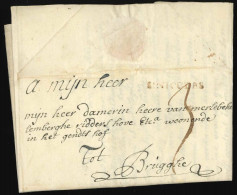 A Mijn heer
mijn heer damerin heere van meslebeke
lemberghe ridders hove etca woonende
in het gendts hof
Tot
Brugghe